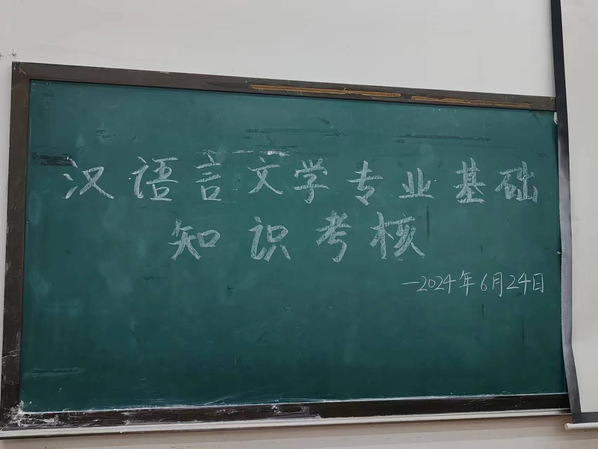 汉语言文学专业基础
知识考核
—2024年6月24日